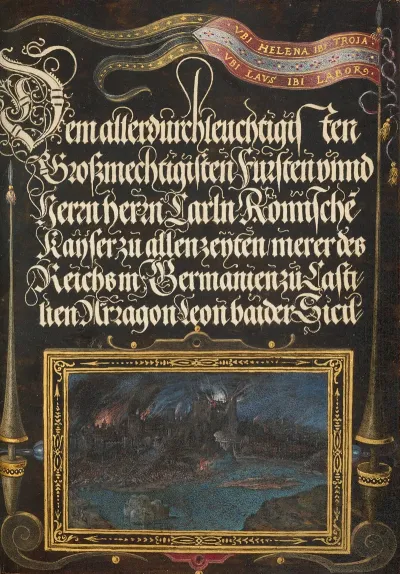 VBI HELENA IBI TROIA.
VBI LAVS IBI LABORS.
Dem allerdurchleuchtigisten
Großmechtigisten Fürsten vnnd
Herrn herrn Carln Römische
Kayser zu allen zeyten merer des
Reichs in Germanien zu Casti
lien Arragon Leon baider Sicil-